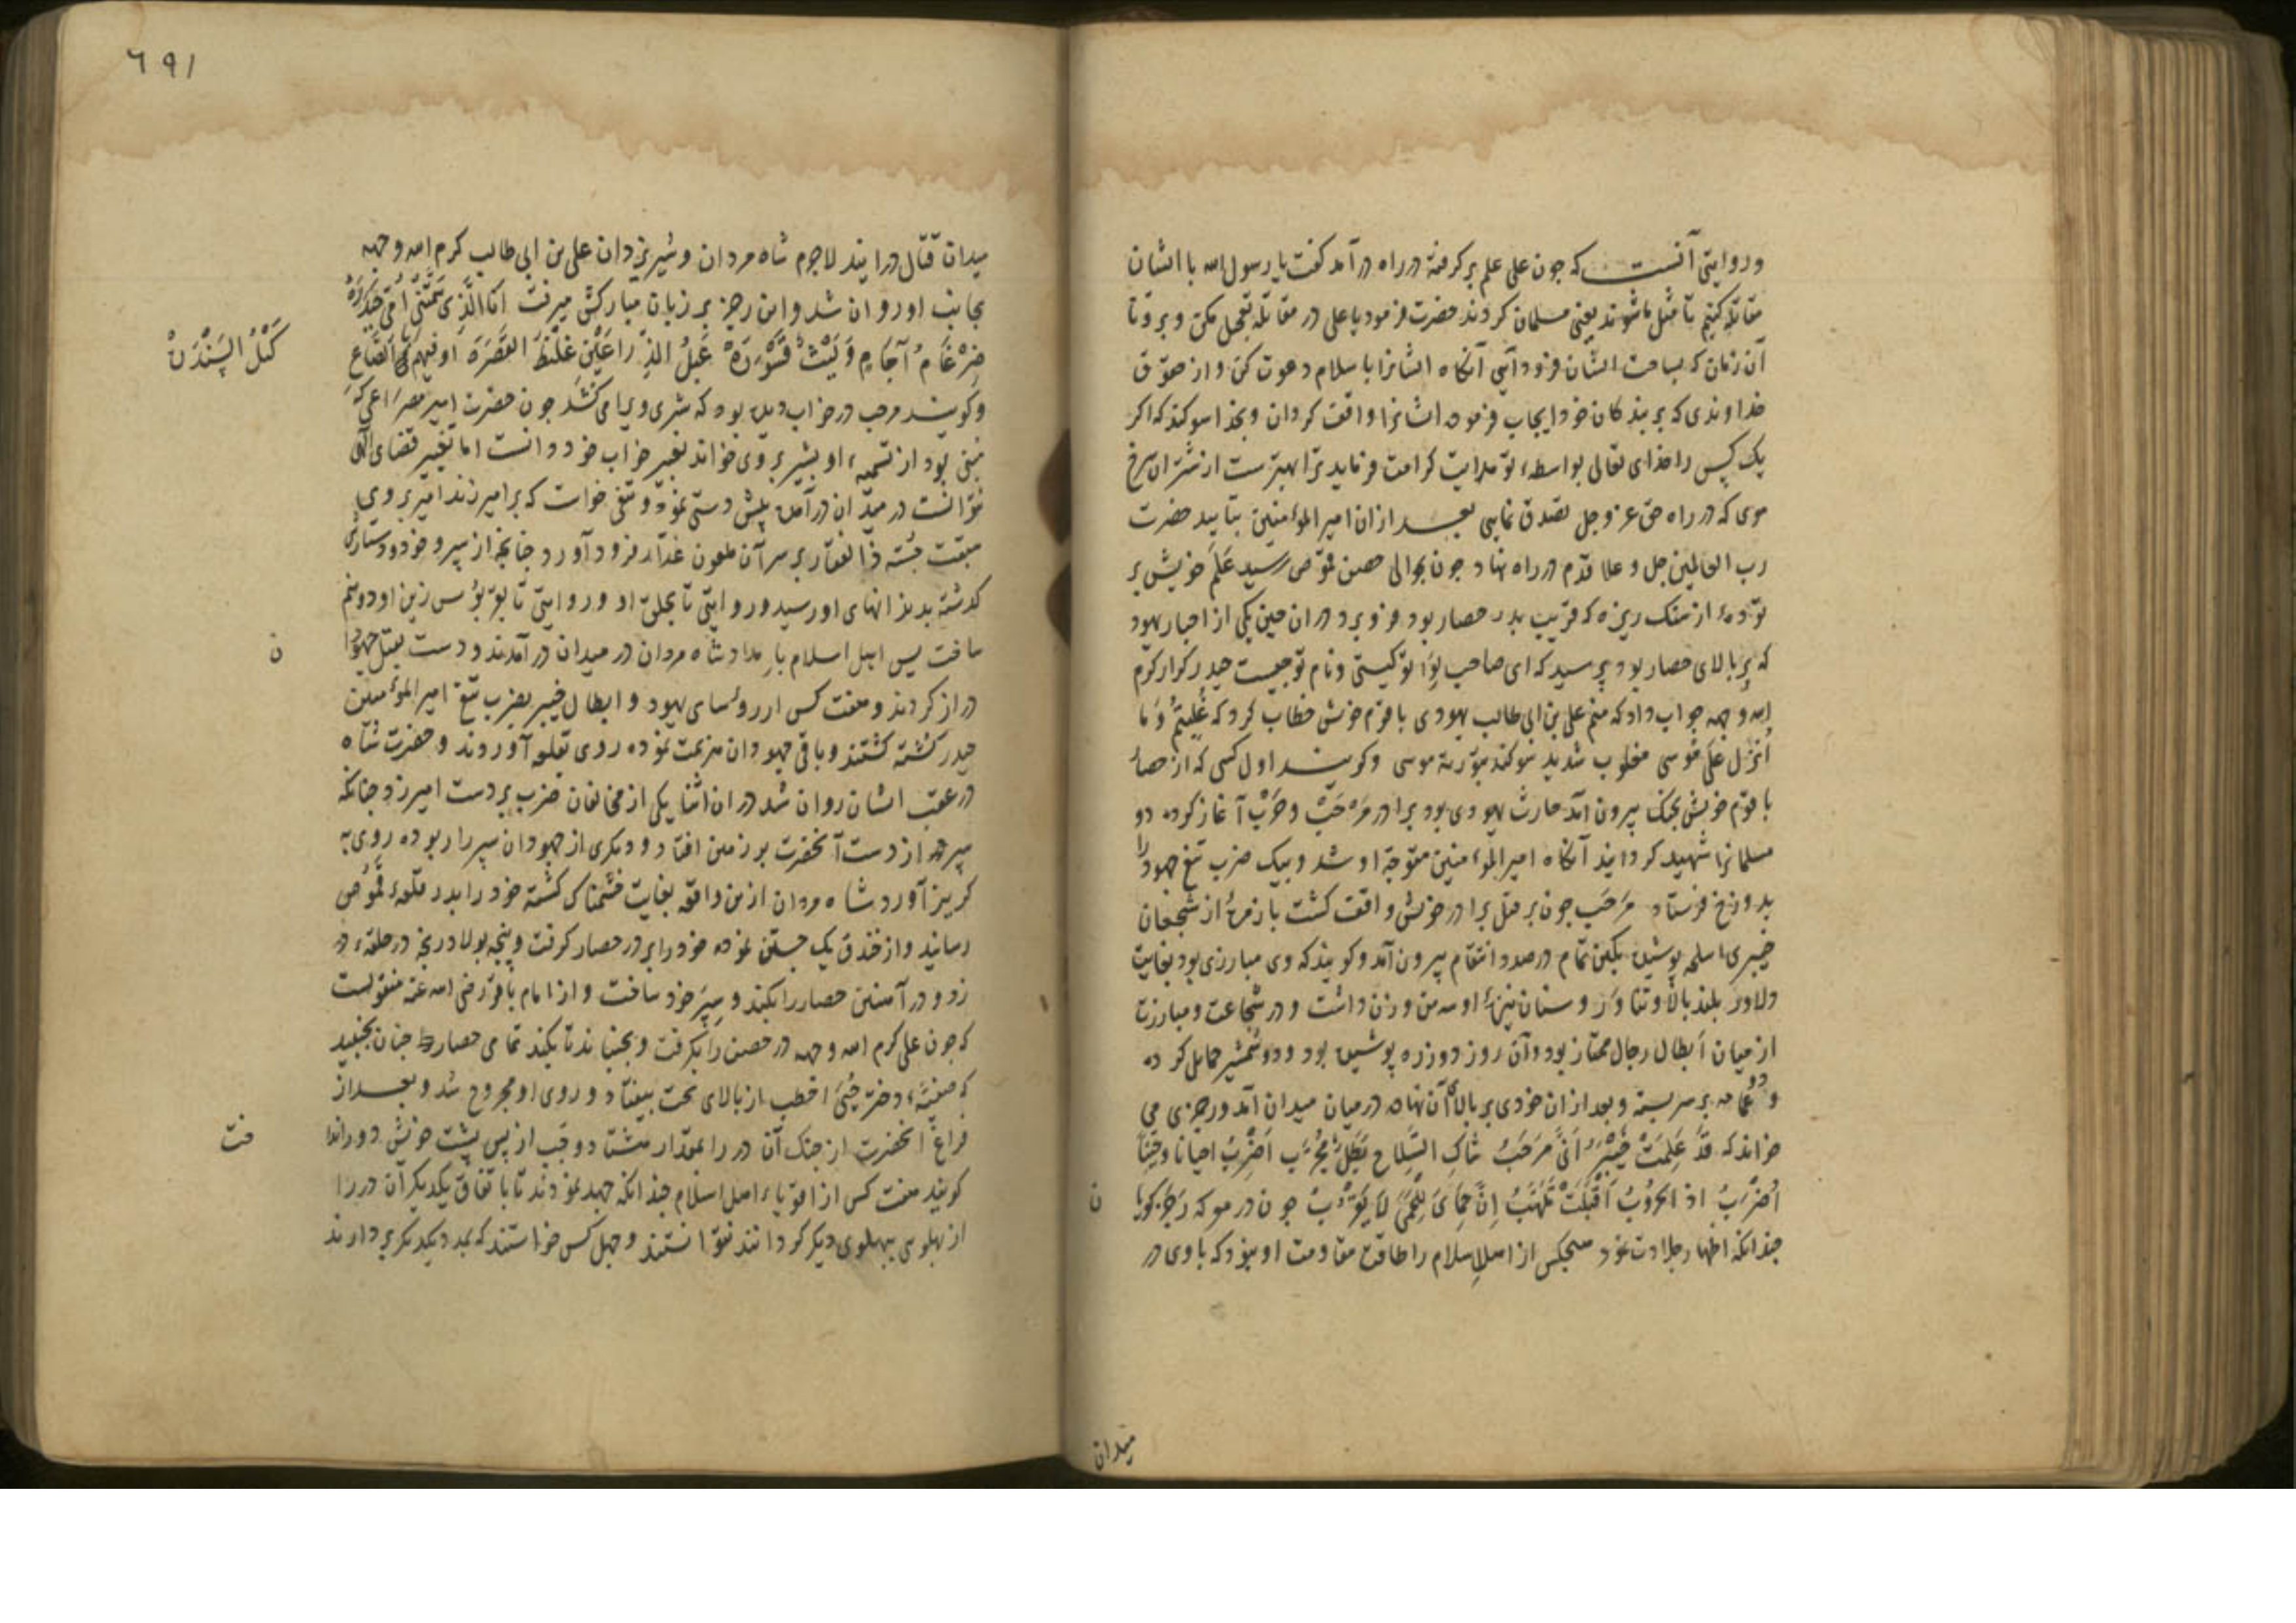 وروایتی آنست که چون علی علم برگرفته در راه درآمد گفت یا رسول الله با ایشان
مقاتله کنیم تا مثل ما شوند یعنی مسلمان کردند حضرت فرمود یا علی در مقاتله تعجیل مکن و برو تا
آن زمان که بساحت ایشان فرود آیی آنکاه ایشانرا باسلام دعوت کن و از حقوق
خداوندی که بر بندکان خود ایجاب فرموده ایشانرا واقف کردان و بخدا سوکند که اکر
یک کس را خدای تعالی بواسطهٔ تو هدایت کرامت فرماید ترا بهترست از شتران سرخ
موی که در راه حق عز وجل تصدق نمایی بعد ازان امیر المؤمنین بتایید حضرت
رب العالمین جل و علا قدم در راه نهاد چون بحوالی حصن قموص رسید علم خویش بر
تودهٔ از سنک ریزه که قریب بدر حصار بود فرو برد دران حین یکی از احبار یهود
که بر بالای حصار بود پرسید که ای صاحب لوا تو کیستی و نام تو چیست حیدر کرار کرم
الله وجهه جواب داد که منم علی بن ابی طالب یهودی با قوم خویش خطاب کرد که غُلِبتُم وَ ما
اُنزِلَ عَلَی مُوسی مغلوب شدید سوکند بتوریة موسی و کویند اول کسی که از حصار
با قوم خویش بجنک بیرون آمد حارث یهودی بود برادر مرحب و حرب آغاز کرده دو
مسلمانرا شهید کردانید آنکاه امیر المؤمنین متوجه او شد و بیک ضرب تیغ جهود را
بدوزخ فرستاد مرحب چون بر قتل برادر خویش واقف کشت با زمرهٔ از شجعان
خیبری اسلحه پوشیده بکین تمام در صدد انتقام بیرون آمد و کویند که وی مبارزی بود بغایت
دلاور بلند بالا و تناور و سنان نیزهٔ او سه من وزن داشت و در شجاعت و مبارزت
از میان ابطال رجال ممتاز بود و آن روز دو زره پوشیده بود و دو شمشیر حمایل کرده
و دو عمامه بر سر بسته و بعد ازان خودی بر بالای آن نهاده در میان میدان آمد و رجزی می
خواند که قَد عَلِمَت خَیبَرُ اَنّی مَرحَبُ شاکِ السِّلاح بَطَلٌ مُجَرَّب اَضرِبُ احیانا وحیناً
اُضرَبُ اذ الحُرُوبُ اَقبَلَت تَلَهَّبُ اِنَّ حِمایَ لِلحِمَی لا یُقرَبُ چون در معرکه رجز کویا
ن
چندانکه اظهار جلادت نمود هیچکس از اهل اسلام را طاقت مقاومت او نبود که با وی در
میدان
٦٩١
میدان قتال درایند لاجرم شاه مردان و شیر یزدان علی بن ابی طالب کرم الله وجهه
بجانب او روان شد و این رجز بر زبان مبارکش میرفت انا الّذی سَمَّتنی اُمّی حَیدَرَهُ
ضِرغامُ آجامٍ وَ لَیثٌ قَسوَرَه عَبلُ الذِراعَینِ غلیظُ القَصَرَه اوفیهِم بالصَّاع
کَیلُ السَّندَرَه
و کویند مرحب در خواب دیده بود که شیری ویرا می کشد چون حضرت امیر مصراعی که
مبنی بود از تسمیهٔ او بشیر بر وی خواند تعبیر خواب خود دانست اما تغییر قضای الهی
نتوانست در میدان درآمده پیش دستی نموده و تیغی خواست که بر امیر زند امیر بر وی
سبقت جسته ذالفقار بر سر آن ملعون غدار فرود آورد چنانچه از سپر و خود و دستارش
کذشته بدندانهای او رسید و روایتی تا بحلق او و روایتی تا قربوس زین او دو نیم
ساخت پس اهل اسلام بامداد شاه مردان در میدان درآمدند و دست بقتل جهودا
ن
دراز کردند و هفت کس از رؤسای یهود و ابطال خیبر بضرب تیغ امیر المؤمنین
حیدر کشته کشتند و باقی جهودان هزیمت نموده روی بقلعه آوردند و حضرت شاه
در عقب ایشان روان شد دران اثنا یکی از مخالفان ضرب بر دست امیر زد چنانکه
سپر از دست آنحضرت بر زمین افتاد و دیکری از جهودان سپر را ربوده روی به
کریز آورد شاه مردان ازین واقعه بغایت خشمناک کشته خود را بدر قلعهٔ قموص
رسانید و از خندق یک جستن نموده خود را بر در حصار کرفت و پنجه بولاد ریخته در حلقهٔ در
زد و در آهنین حصار را بکند و سپر خود ساخت و از امام باقر رضی الله عنه منقولست
که چون علی کرم الله وجهه در حصن را بکرفت و بجنبانید تا بکند تمامی حصار چنان بجنبید
که صفیه دختر حُیی اخطب از بالای تخت بیفتاد و روی او مجروح شد و بعد از
فراغ آنحضرت از جنک آن در را بمقدار هشتاد وجب از پس پشت خویش دور اندا
خت
کویند هفت کس از اقویاء اهل اسلام چندانکه جهد نمودند تا باتفاق یکدیکر آن در را
از پهلوی بپهلوی دیکر کردانند نتوانستند و چهل کس خواستند که بمدد یکدیکر بر دارند